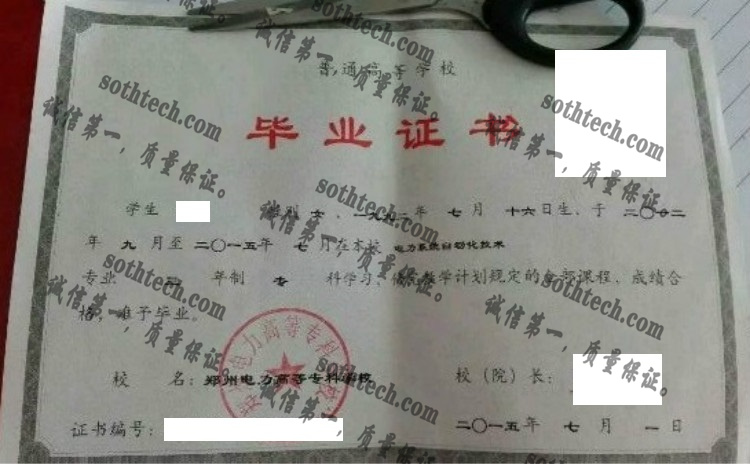 普通高等学校
毕业证书
学生 性别 女、一九九三年 七 月 十六日生、于 二〇一二
年 九 月至 二〇一五年 七 月在本校 电力系统自动化技术
专业 年制 专 科学习、修完教学计划规定的全部课程、成绩合
格，准予毕业。
校 名：郑州电力高等专科学校
校（院）长：
证书编号：
二〇一五年 七 月 一日
sothtech.com
诚信第一，质量保证。
sothtech.com
诚信第一，质量保证。
sothtech.com
诚信第一，质量保证。
sothtech.com
诚信第一，质量保证。
sothtech.com
诚信第一，质量保证。
sothtech.com
诚信第一，质量保证。
sothtech.com
诚信第一，质量保证。